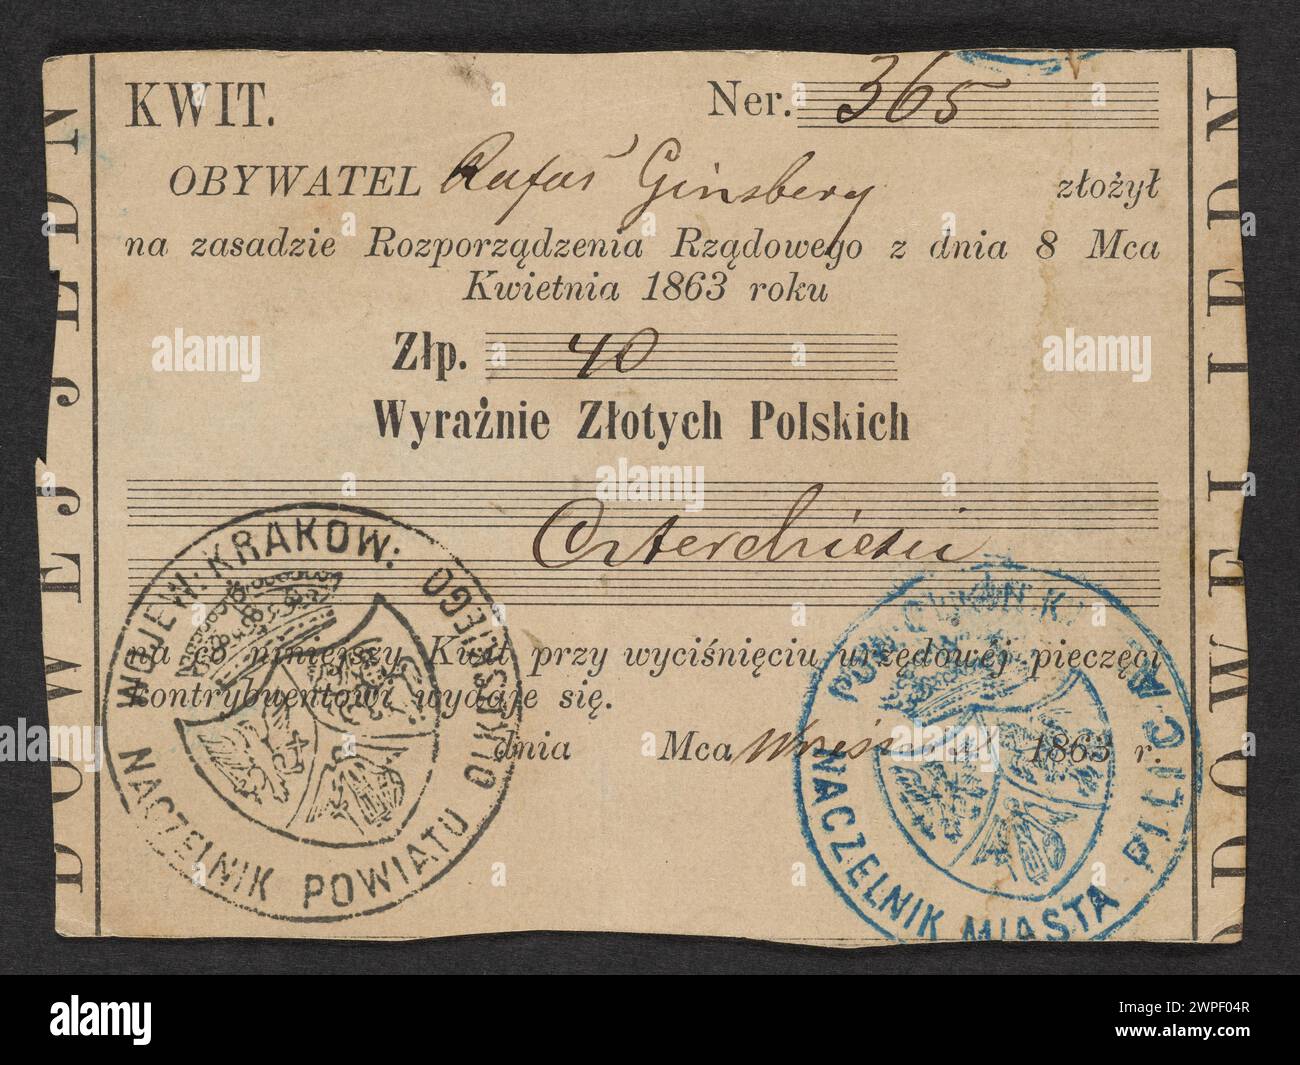 KWIT. Ner. 365
OBYWATEL Rafał Ginsberg złożył
na zasadzie Rozporządzenia Rządowego z dnia 8 Mca
Kwietnia 1863 roku
Złp. 40
Wyraźnie Złotych Polskich
Czterdzieści
na co niniejszy Kwit przy wyciśnięciu urzędowej pieczęci
kontrybuentowi wydaje się.
dnia Mca 1863 r.
WOJEW: KRAKOW:
NACZELNIK POWIATU OLKUSKIEGO
NACZELNIK MIASTA PILICA
DOWEJ JEDN
alamy
Image ID: 2WPF04R
www.alamy.com